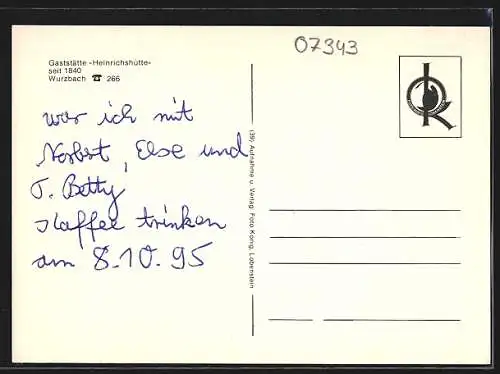 Gaststätte »Heinrichshütte«
seit 1840
Wurzbach ☎ 266
07343
war ich mit
Norbert, Else und
T. Betty
Kaffee trinken
am 8.10.95
(39) Aufnahme u. Verlag Foto König, Lobenstein